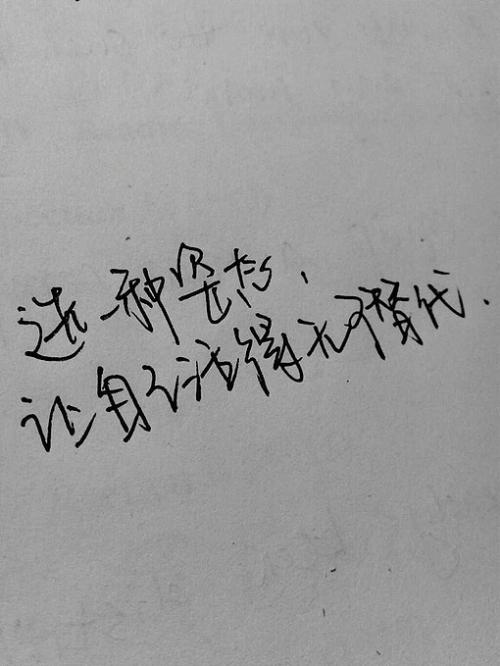 选一种姿态,
让自己活得无可替代.